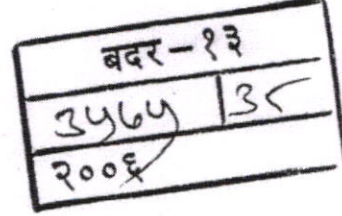 बदर-१३
३५७५ | ३८
२००६